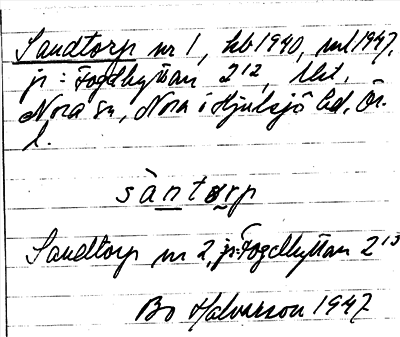 Sandtorp nr 1, hb 1940, ml 1947,
jr: Fogdhyttan 2¹²,
Nora sn, Nora i Hjulsjö hd, Ör.
l.
sàntorp
Sandtorp nr 2, jr: Fogdhyttan 2¹³
Bo Halvarson 1947